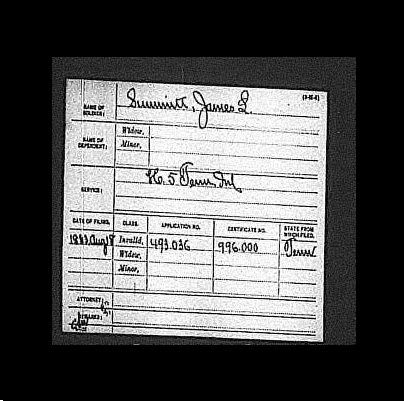 NAME OF SOLDIER: Summitt, James L.
NAME OF DEPENDENT: Widow,
Minor,
SERVICE: H. 5 Tenn. Inf
DATE OF FILING. CLASS. APPLICATION NO. CERTIFICATE NO. STATE FROM WHICH FILED.
1883 Aug Invalid, 493.036 996.000 Tenn
Widow,
Minor,
ATTORNEY:
REMARKS: